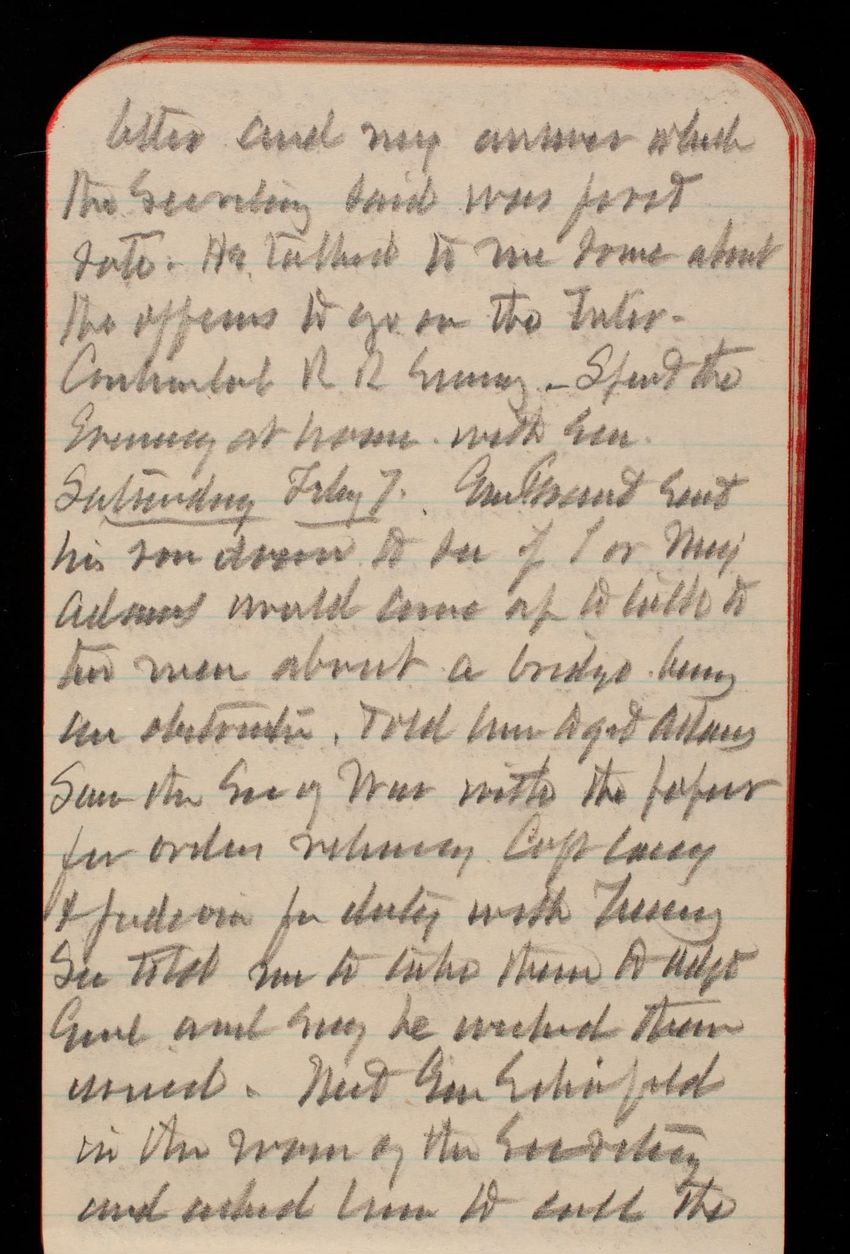 letter and my answer which
the Secretary said was first
rate. He talked to me some about
the officers to go on the Inter-
Continental R R Survey - Spent the
Evening at home with Gen.
Saturday Feby 7. Gen Grant sent
his son down to see if I or Maj
Adams would come up to talk to
two men about a bridge being
an obstruction. Told him to get Adams
Saw the Sec of War with the paper
for orders relieving Capt Casey
for duty with
Sec told me to take them to Adjt
Genl and say he wished them
issued. Met Gen Schofield
in the room of the Secretary
and asked him to call the